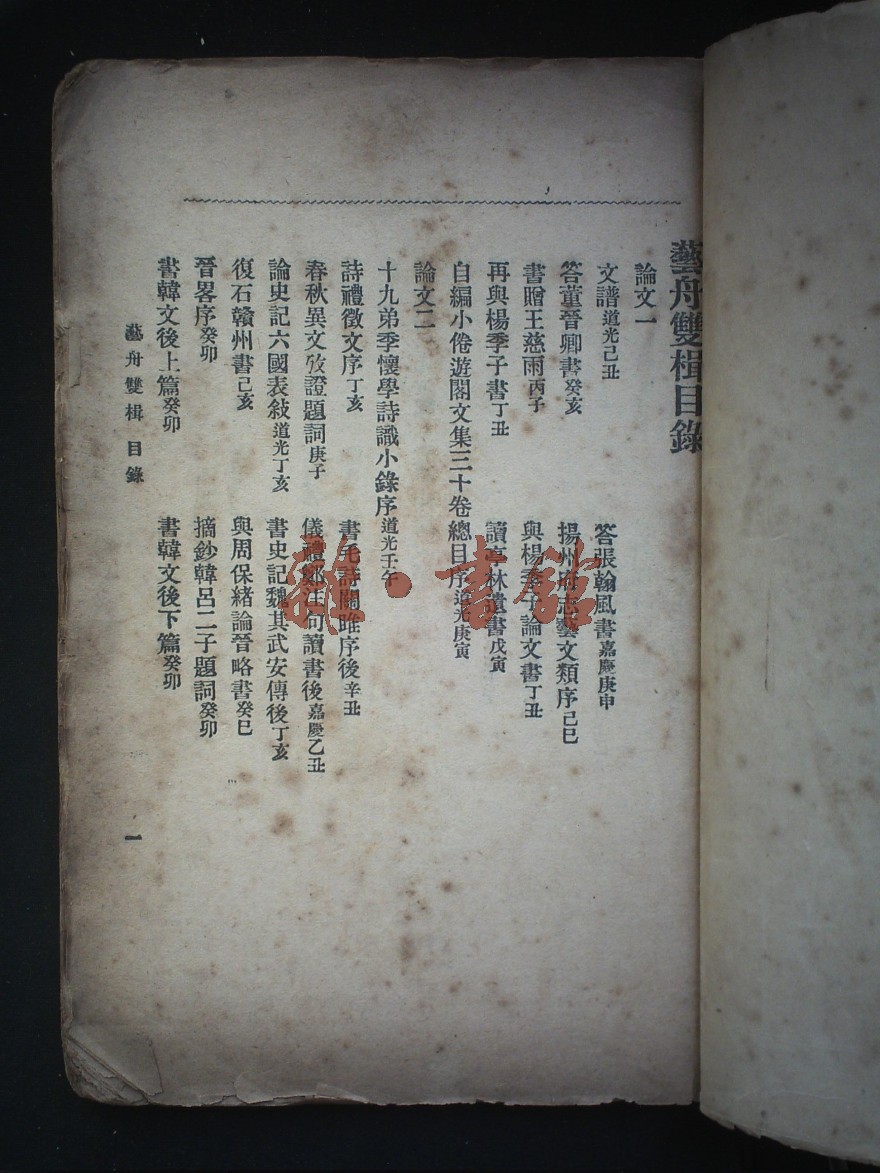 藝舟雙楫目錄
論文一
文譜道光己丑 答張翰風書嘉慶庚申
答董晉卿書癸亥 揚州府志藝文類序己巳
書贈王慈雨丙子 與楊季子論文書丁丑
再與楊季子書丁丑 讀亭林遺書戊寅
自編小倦遊閣文集三十卷總目序道光庚寅
論文二
十九弟季懷學詩識小錄序道光壬午
詩禮徵文序丁亥 書毛詩關雎序後辛丑
春秋異文攷證題詞庚子 儀禮鄭注句讀書後嘉慶乙丑
論史記六國表敍道光丁亥 書史記魏其武安傳後丁亥
復石贛州書己亥 與周保緒論晉略書癸巳
晉畧序癸卯 摘鈔韓呂二子題詞癸卯
書韓文後上篇癸卯 書韓文後下篇癸卯
藝舟雙楫 目錄 一
雜·書館